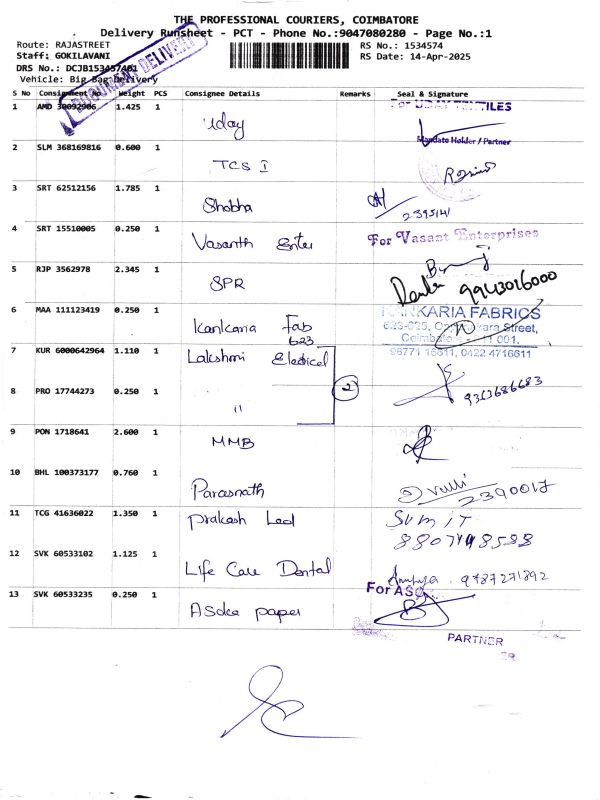 THE PROFESSIONAL COURIERS, COIMBATORE
Delivery Runsheet - PCT - Phone No.:9047080280 - Page No.:1
Route: RAJASTREET
RS No.: 1534574
Staff: GOKILAVANI
RS Date: 14-Apr-2025
DRS No.: DCJB153457401
Vehicle: Big Bag Delivery
DOCUMENT DELIVERY
S No Consignment No Weight PCS Consignee Details Remarks Seal & Signature
1 AMD 30092906 1.425 1 Uday For UDAY TEXTILES
Mandate Holder / Partner
2 SLM 368169816 0.600 1 TCS I
3 SRT 62512156 1.785 1 Shobha 2395141
4 SRT 15510005 0.250 1 Vasanth Enter For Vasant Enterprises
5 RJP 3562978 2.345 1 SPR 9943016000
6 MAA 111123419 0.250 1 Kankaria Fab 623 KANKARIA FABRICS
623-625, Street,
Coimbatore - 641 001.
96771 16611, 0422 4716611
7 KUR 6000642964 1.110 1 Lakshmi Electrical
2
8 PRO 17744273 0.250 1 " 9363686683
9 PON 1718641 2.600 1 MMB
10 BHL 100373177 0.760 1 Parasnath 2390017
11 TCG 41636022 1.350 1 Prakash Led SUMIT
8807748588
12 SVK 60533102 1.125 1 Life Care Dental 9787271892
13 SVK 60533235 0.250 1 Asoke paper For ASO
PARTNER